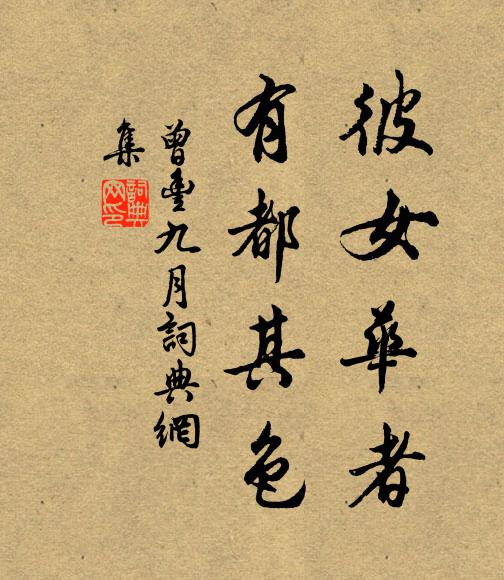 彼女華者
有都其色
曾豐九月詞典網
集
詞典
网印